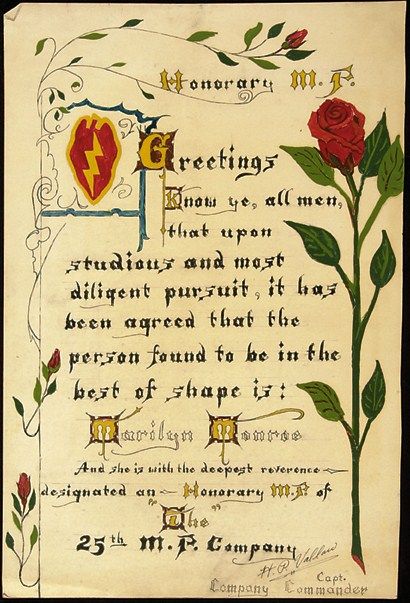 Honorary M. P.
Greetings
Know ye, all men,
that upon
studious and most
diligent pursuit, it has
been agreed that the
person found to be in the
best of shape is:
Marilyn Monroe
And she is with the deepest reverence
designated an Honorary M.P. of
"The"
25th M. P. Company
H. R.
Capt.
Company Commander